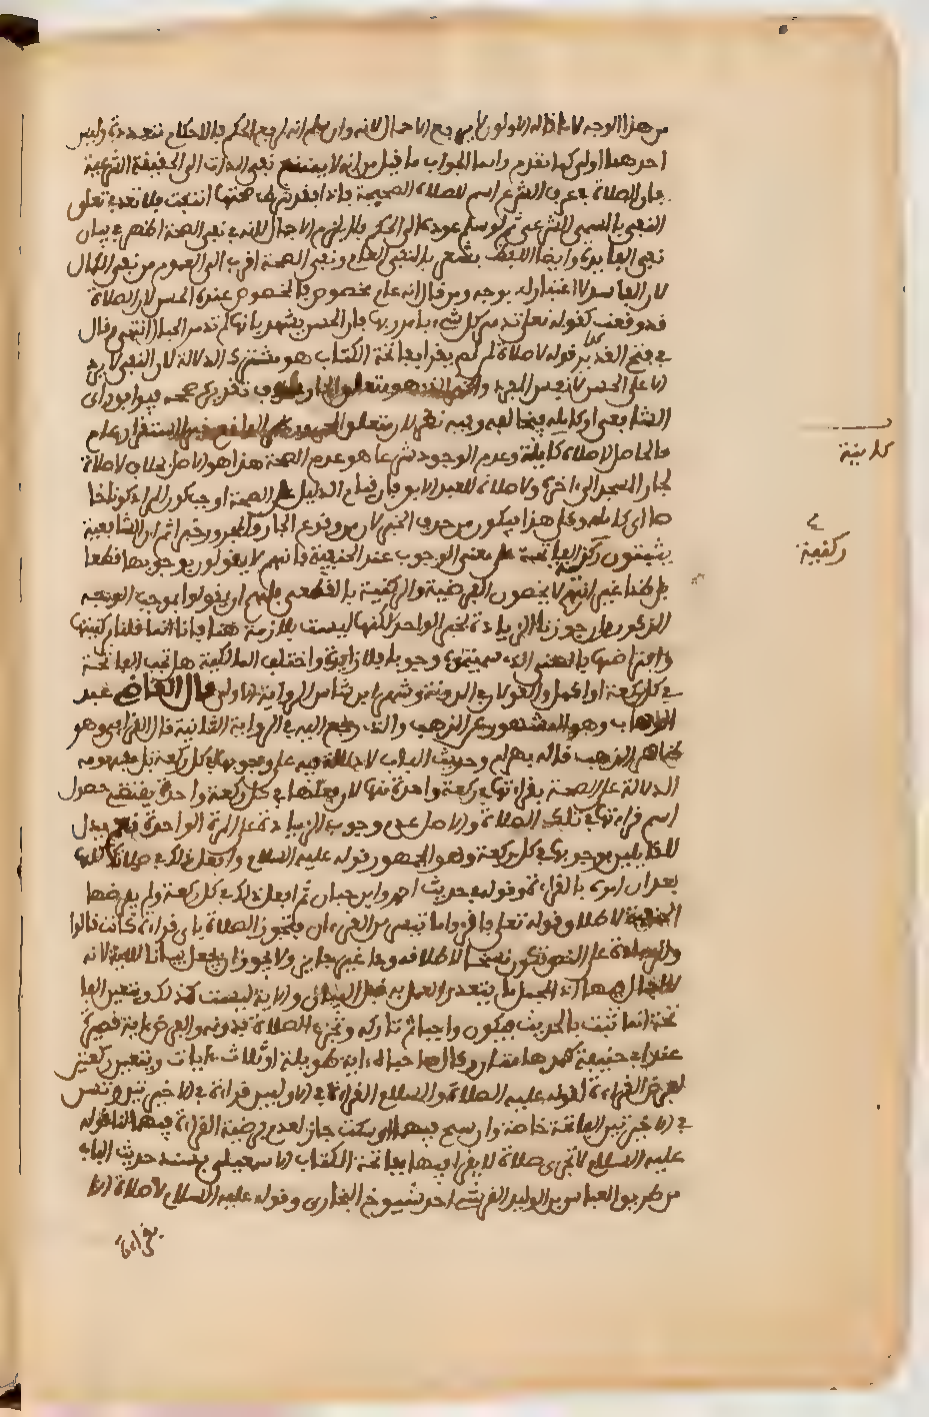 من هذا الوجه لا ما قاله الاولون لا يرفع الاجمال لانه وان سلم انه لرفع الحكم فالاحكام متعددة وليس
احدهما اولى كما تقدم وانما الجواب ما قيل من انه لا يمتنع نفي الذات الى الحقيقة الشرعية
فان الصلاة في عرف الشرع اسم للصلاة الصحيحة فاذا فقد شرط صحتها انتفت فلا بعد في تعلق
النفي بالمسمى الشرعي ثم لو سلم عوده الى الحكم فلا يلزم الاجمال لانه في نفي الصحة اظهر في بيان
نفي الفايدة وايضا اللفظ يشعر بالنفي العام ونفي الصحة اقرب الى العموم من نفي الكمال
لان الفاسد لا اعتبار له بوجه ومن قال انه عام مخصوص فالمخصوص عنده الحس لان الصلاة
قد وقعت كقوله تعالى تدمر كل شيء بامر ربها فان الحس يشهد بانها لم تدمر الجبال انتهى وقال
في فتح القدير قوله لا صلاة لمن لم يقرا بفاتحة الكتاب هو مشترك الدلالة لان النفي لا يرد
الا على الجنس لا نفس المفرد والخبر هو متعلق الجار تقديره صحيحة فيوافق راى
الشافعي او كاملة فيخالفه وفيه نظر لان متعلق المجرور الواقع خبرا استقرار عام
فالحاصل لا صلاة كاينة وعدم الوجود شرعا هو عدم الصحة هذا هو الاصل بخلاف لا صلاة
لجار المسجد الى اخره ولا صلاة للعبد الابق فان قيام الدليل على الصحة اوجب كون المراد كونا خا
صا اى كاملة وعلى هذا فيكون من حذف الخبر لا من وقوع الجار والمجرور خبرا ثم ان الشافعية
يثبتون ركنية الفاتحة على معنى الوجوب عند الحنفية فانهم لا يقولون بوجوبها قطعا
بل ظنا غير انهم لا يخصون الفرضية والركنية بالقطعي فلهم ان يقولوا بموجب الوجه
المذكور وان جوزنا الزيادة بخبر الواحد لكنها ليست بلازمة هنا فانا انما قلنا بركنيتها
وافتراضها بالمعنى الذى سميتموه وجوبا فلا زيادة واختلف المالكية هل تجب الفاتحة
في كل ركعة او الجل والقولان في المدونة وشهر ابن شاس الرواية الاولى قال القاضي عبد
الوهاب وهو المشهور من المذهب والذى رجع اليه في الرواية الثانية قال القرافي وهو
ظاهر المذهب قاله بهرام وحديث الباب لا دلالة فيه على وجوبها في كل ركعة بل مفهومه
الدلالة على الصحة بقراتها في ركعة واحدة منها لان فعلها في كل ركعة واحدة يقتضي حصول
اسم قراتها في تلك الصلاة والاصل عدم وجوب الزيادة على المرة الواحدة نعم يدل
للقايلين بوجوبها في كل ركعة وهو الجمهور قوله عليه السلام وافعل ذلك في صلاتك كلها
بعد ان امره بالقراءة وقوله في حديث احمد وابن حبان ثم افعل ذلك في كل ركعة ولم يفرضها
الحنفية لاطلاق قوله تعالى فاقرءوا ما تيسر من القرءان فتجوز الصلاة باى قراءة كانت قالوا
والزيادة على النص تكون نسخا لاطلاقه وذا غير جايز ولا يجوز ان يجعل بيانا للاية لانه
لا اجمال فيها اذ المجمل ما يتعذر العمل به قبل البيان والاية ليست كذلك وتعيين الفا
تحة انما ثبت بالحديث فيكون واجبا ياثم تاركه وتجزى الصلاة بدونه والفرض اية قصيرة
عند ابي حنيفة كمدهامتان وقال صاحباه اية طويلة او ثلاث ءايات وتتعين ركعتين
لفرض القراءة لقوله عليه الصلاة والسلام القراءة في الاوليين قراءة في الاخيرتين وتسن
في الاخيرتين الفاتحة خاصة وان سبح فيهما او سكت جاز لعدم فرضية القراءة فيهما لنا قوله
عليه السلام لا تجزى صلاة لا يقرا فيها بفاتحة الكتاب الاسمعيلي بسند حديث الباب
من طريق العباس بن الوليد القرشي احد شيوخ البخارى وقوله عليه السلام لا صلاة الا
بقراءة
كاينة
ركنية